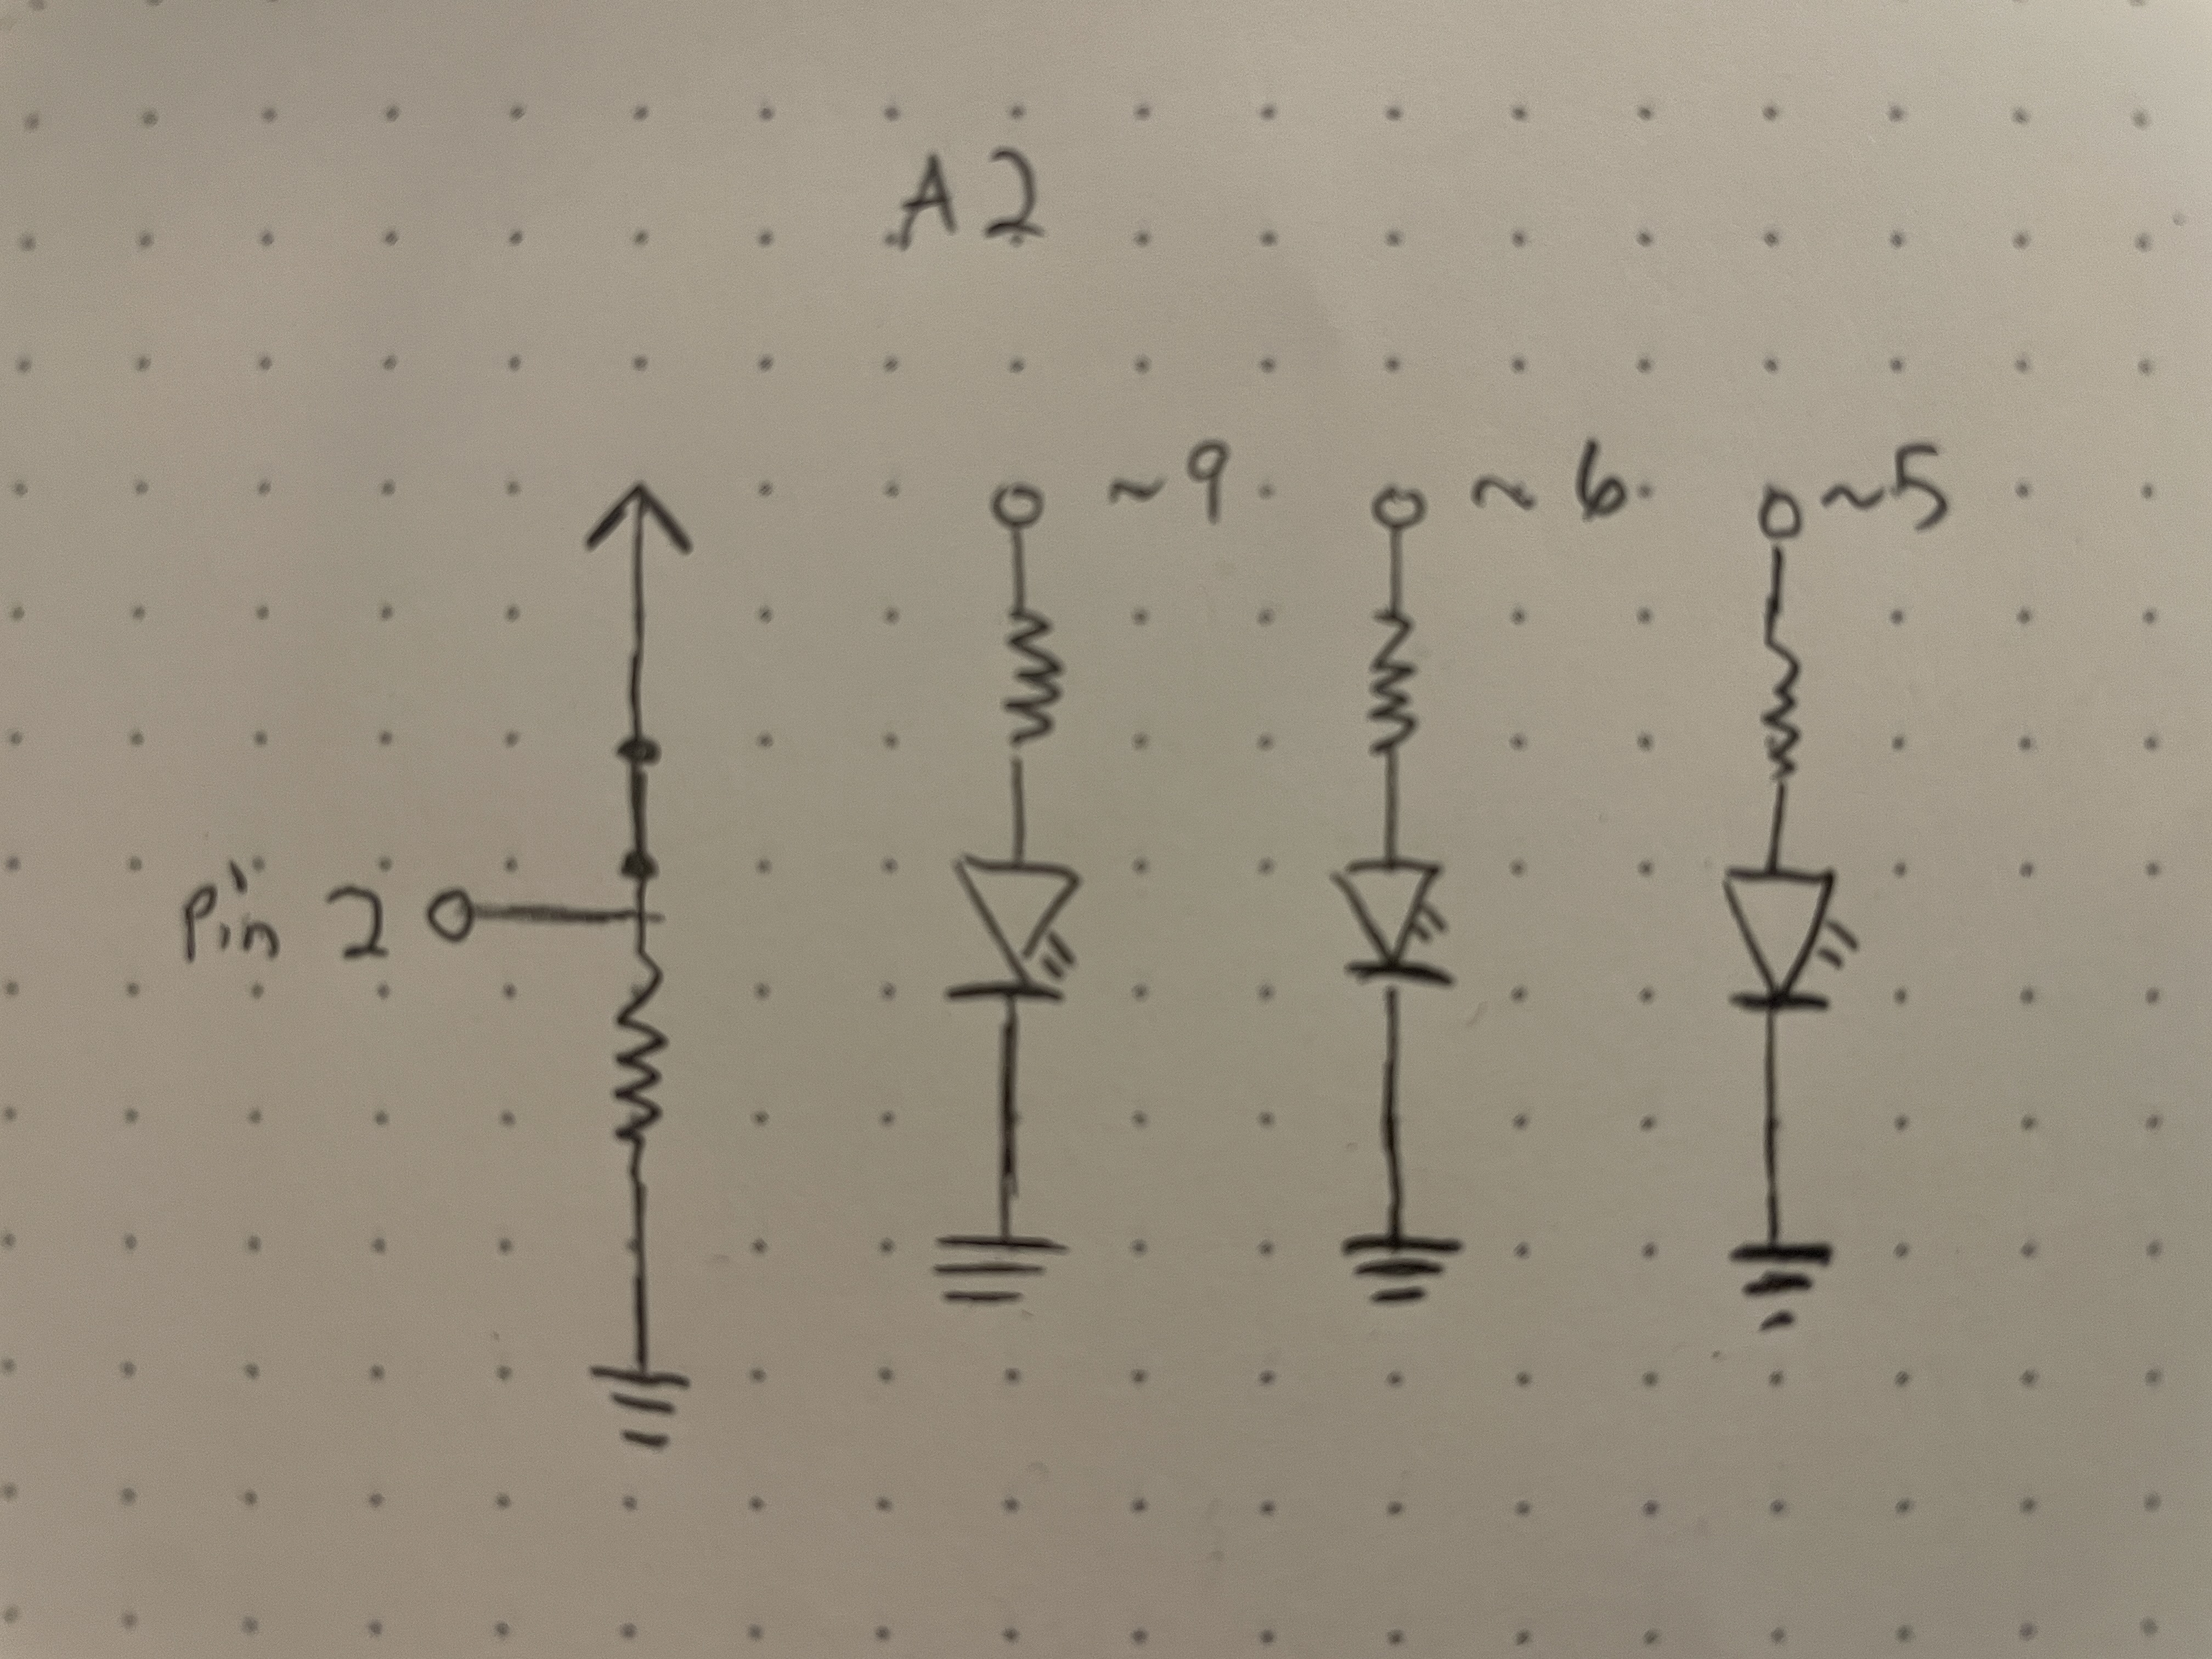 A2
~9
~6
~5
Pin 2